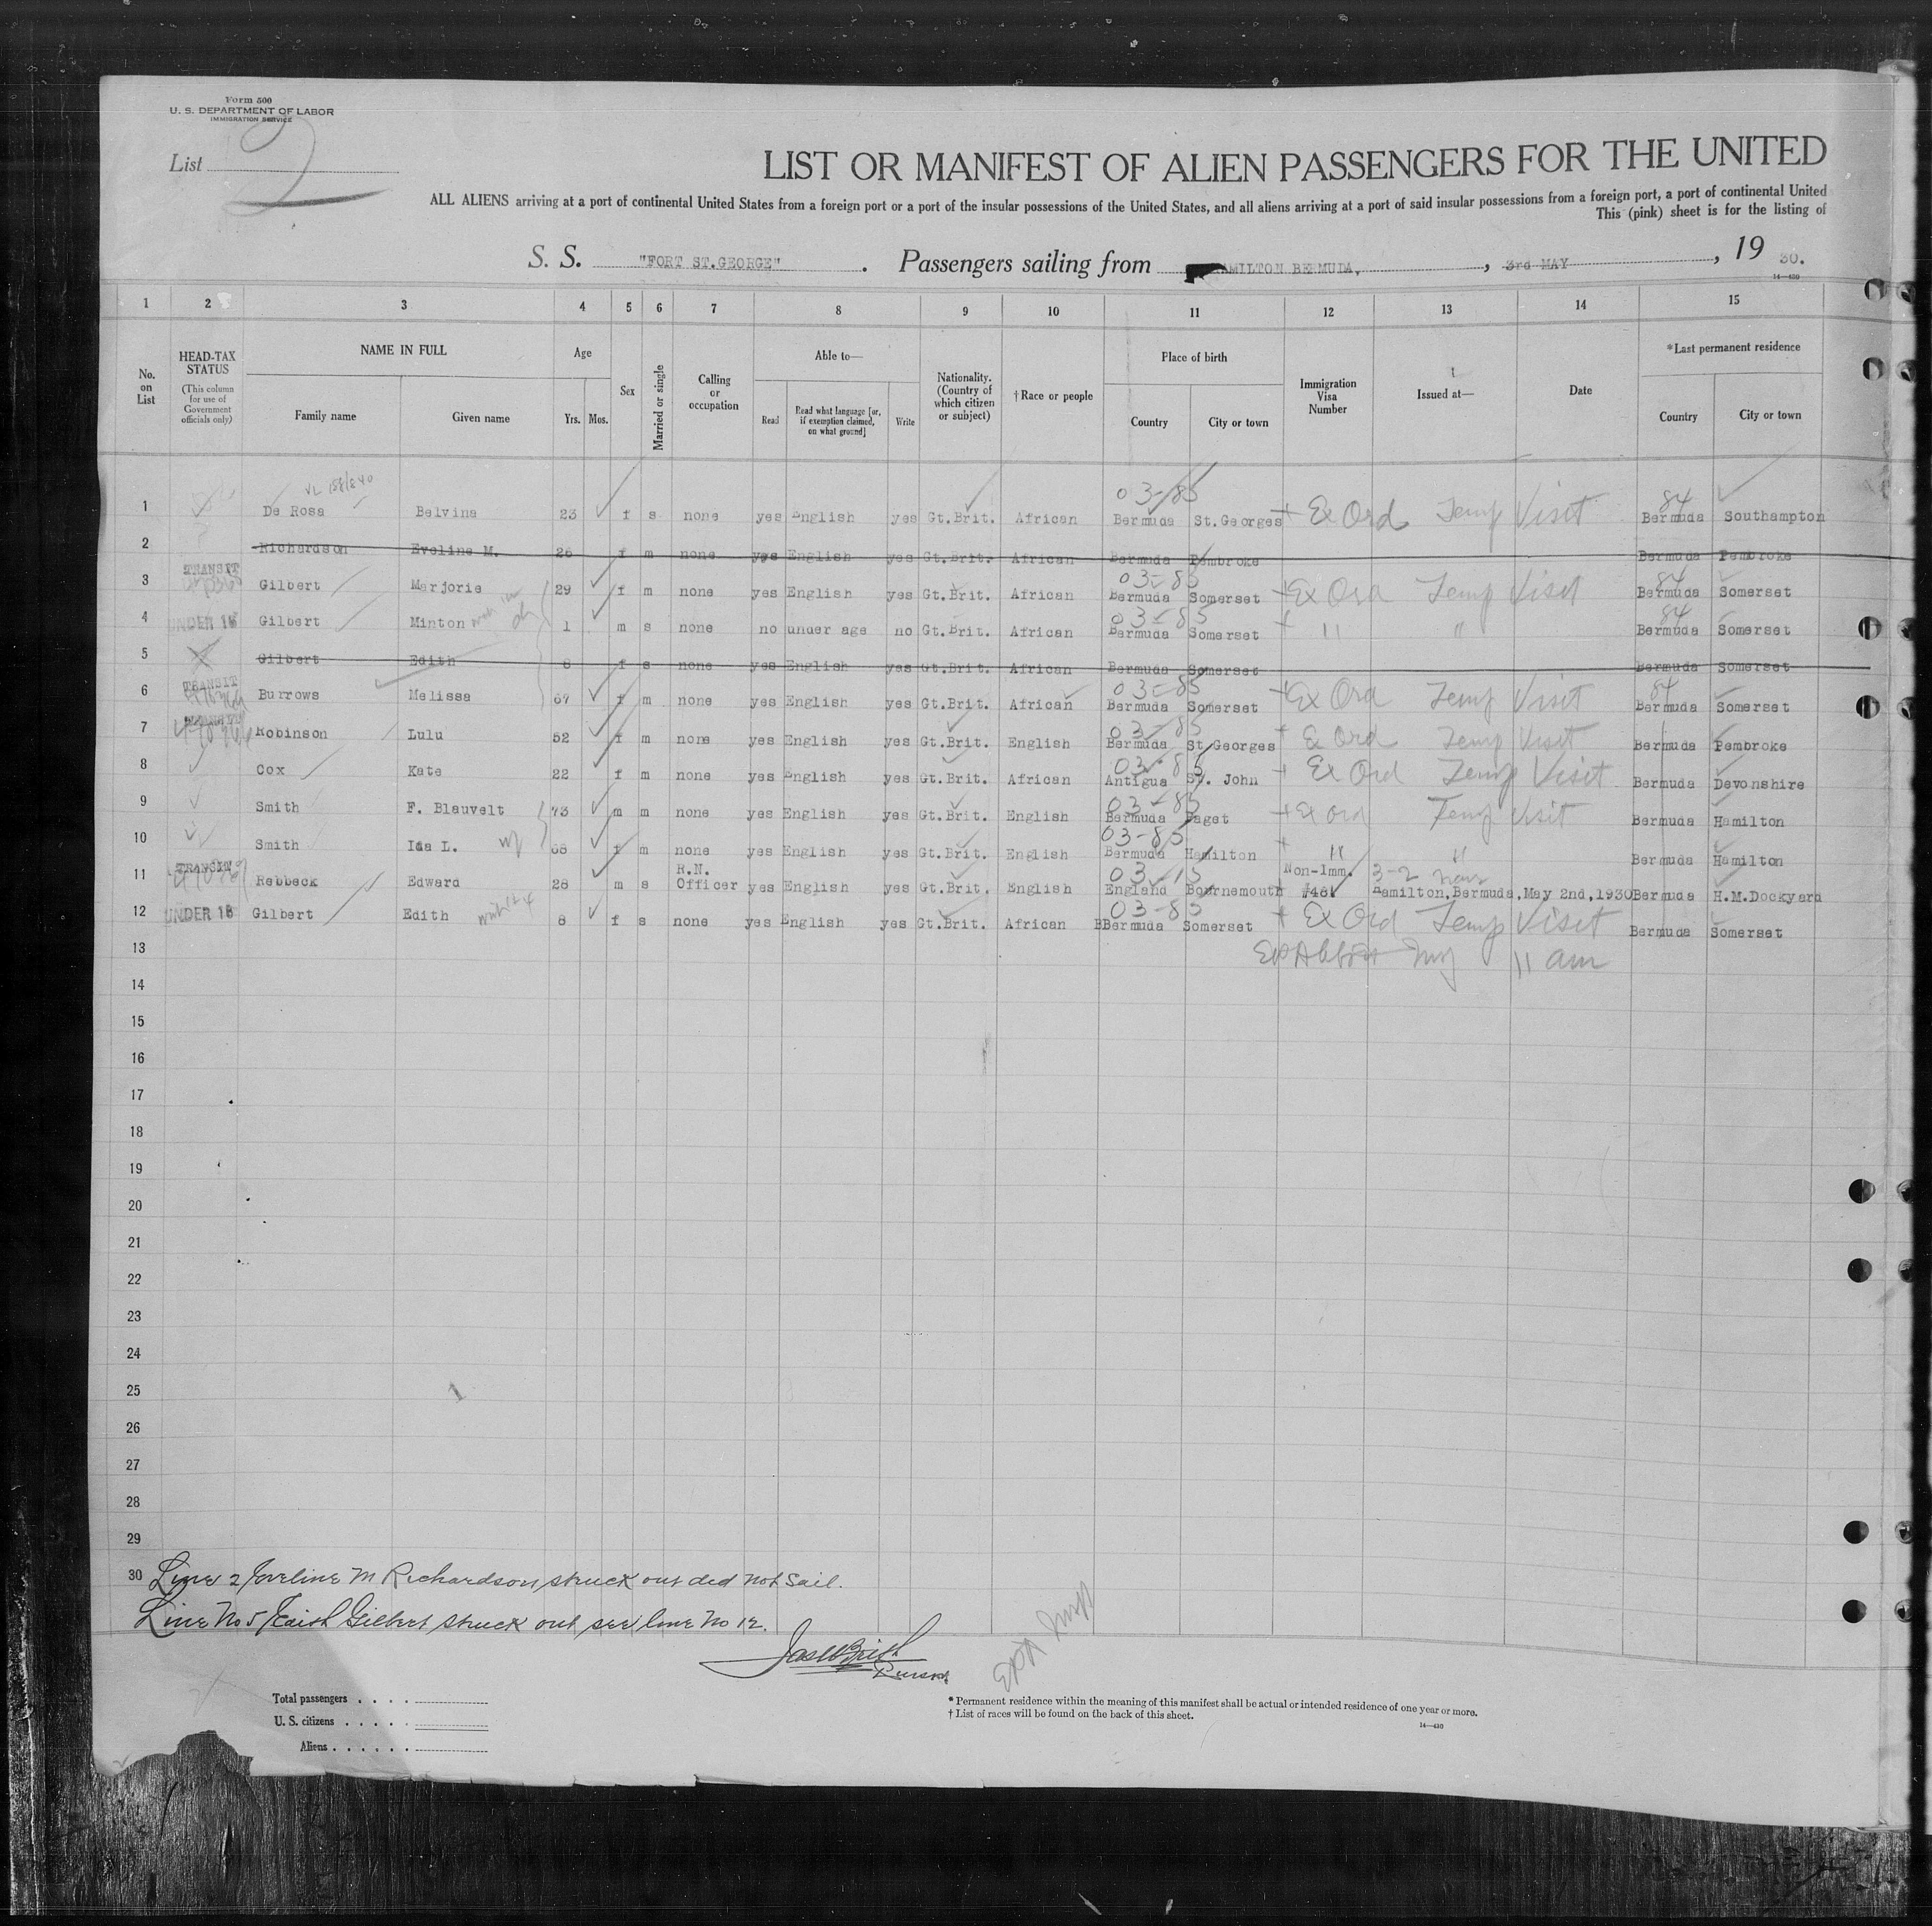 Form 500
U. S. DEPARTMENT OF LABOR
IMMIGRATION SERVICE
List 2
LIST OR MANIFEST OF ALIEN PASSENGERS FOR THE UNITED
ALL ALIENS arriving at a port of continental United States from a foreign port or a port of the insular possessions of the United States, and all aliens arriving at a port of said insular possessions from a foreign port, a port of continental United
This (pink) sheet is for the listing of
S. S. "FORT ST.GEORGE" . Passengers sailing from HAMILTON BERMUDA, , 3rd MAY , 19 30.
14—430
1 2 3 4 5 6 7 8 9 10 11 12 13 14 15
No. on List
HEAD-TAX STATUS (This column for use of Government officials only)
NAME IN FULL
Family name Given name
Age
Yrs. Mos.
Sex
Married or single
Calling or occupation
Able to—
Read Read what language [or, if exemption claimed, on what ground] Write
Nationality. (Country of which citizen or subject)
†Race or people
Place of birth
Country City or town
Immigration Visa Number
Issued at—
Date
*Last permanent residence
Country City or town
03-85 84
1 De Rosa Belvina 23 f s none yes English yes Gt.Brit. African Bermuda St.Georges + Ex Ord Temp Visit Bermuda Southampton
2 Richardson Eveline M. 26 f m none yes English yes Gt.Brit. African Bermuda Pembroke Bermuda Pembroke
TRANSIT 03-85 84
3 Gilbert Marjorie 29 f m none yes English yes Gt.Brit. African Bermuda Somerset + Ex Ord Temp Visit Bermuda Somerset
03-85 84
4 UNDER 16 Gilbert Minton 1 m s none no under age no Gt.Brit. African Bermuda Somerset + " " Bermuda Somerset
5 Gilbert Edith 8 f s none yes English yes Gt.Brit. African Bermuda Somerset Bermuda Somerset
TRANSIT 03-85 84
6 Burrows Melissa 67 f m none yes English yes Gt.Brit. African Bermuda Somerset + Ex Ord Temp Visit Bermuda Somerset
TRANSIT 03-85
7 Robinson Lulu 52 f m none yes English yes Gt.Brit. English Bermuda St.Georges + Ex Ord Temp Visit Bermuda Pembroke
03-85
8 Cox Kate 22 f m none yes English yes Gt.Brit. African Antigua St. John + Ex Ord Temp Visit Bermuda Devonshire
03-85
9 Smith F. Blauvelt 73 m m none yes English yes Gt.Brit. English Bermuda Paget + Ex Ord Temp Visit Bermuda Hamilton
03-85
10 Smith Ida L. wf 68 f m none yes English yes Gt.Brit. English Bermuda Hamilton + " " Bermuda Hamilton
TRANSIT R.N. 03-15 Non-Imm. 3-2
11 Rebbeck Edward 28 m s Officer yes English yes Gt.Brit. English England Bournemouth #481 Hamilton,Bermuda,May 2nd,1930 Bermuda H.M.Dockyard
03-85
12 UNDER 16 Gilbert Edith 8 f s none yes English yes Gt.Brit. African BBermuda Somerset + Ex Ord Temp Visit Bermuda Somerset
13 11 am
14
15
16
17
18
19
20
21
22
23
24
25
26
27
28
29
30 Line 2 Eveline M Richardson struck out did not sail.
Line No 5 Edith Gilbert struck out see line No 12.
Purser
Total passengers . . . .
U. S. citizens . . . . .
Aliens . . . . . .
* Permanent residence within the meaning of this manifest shall be actual or intended residence of one year or more.
† List of races will be found on the back of this sheet.
14—430